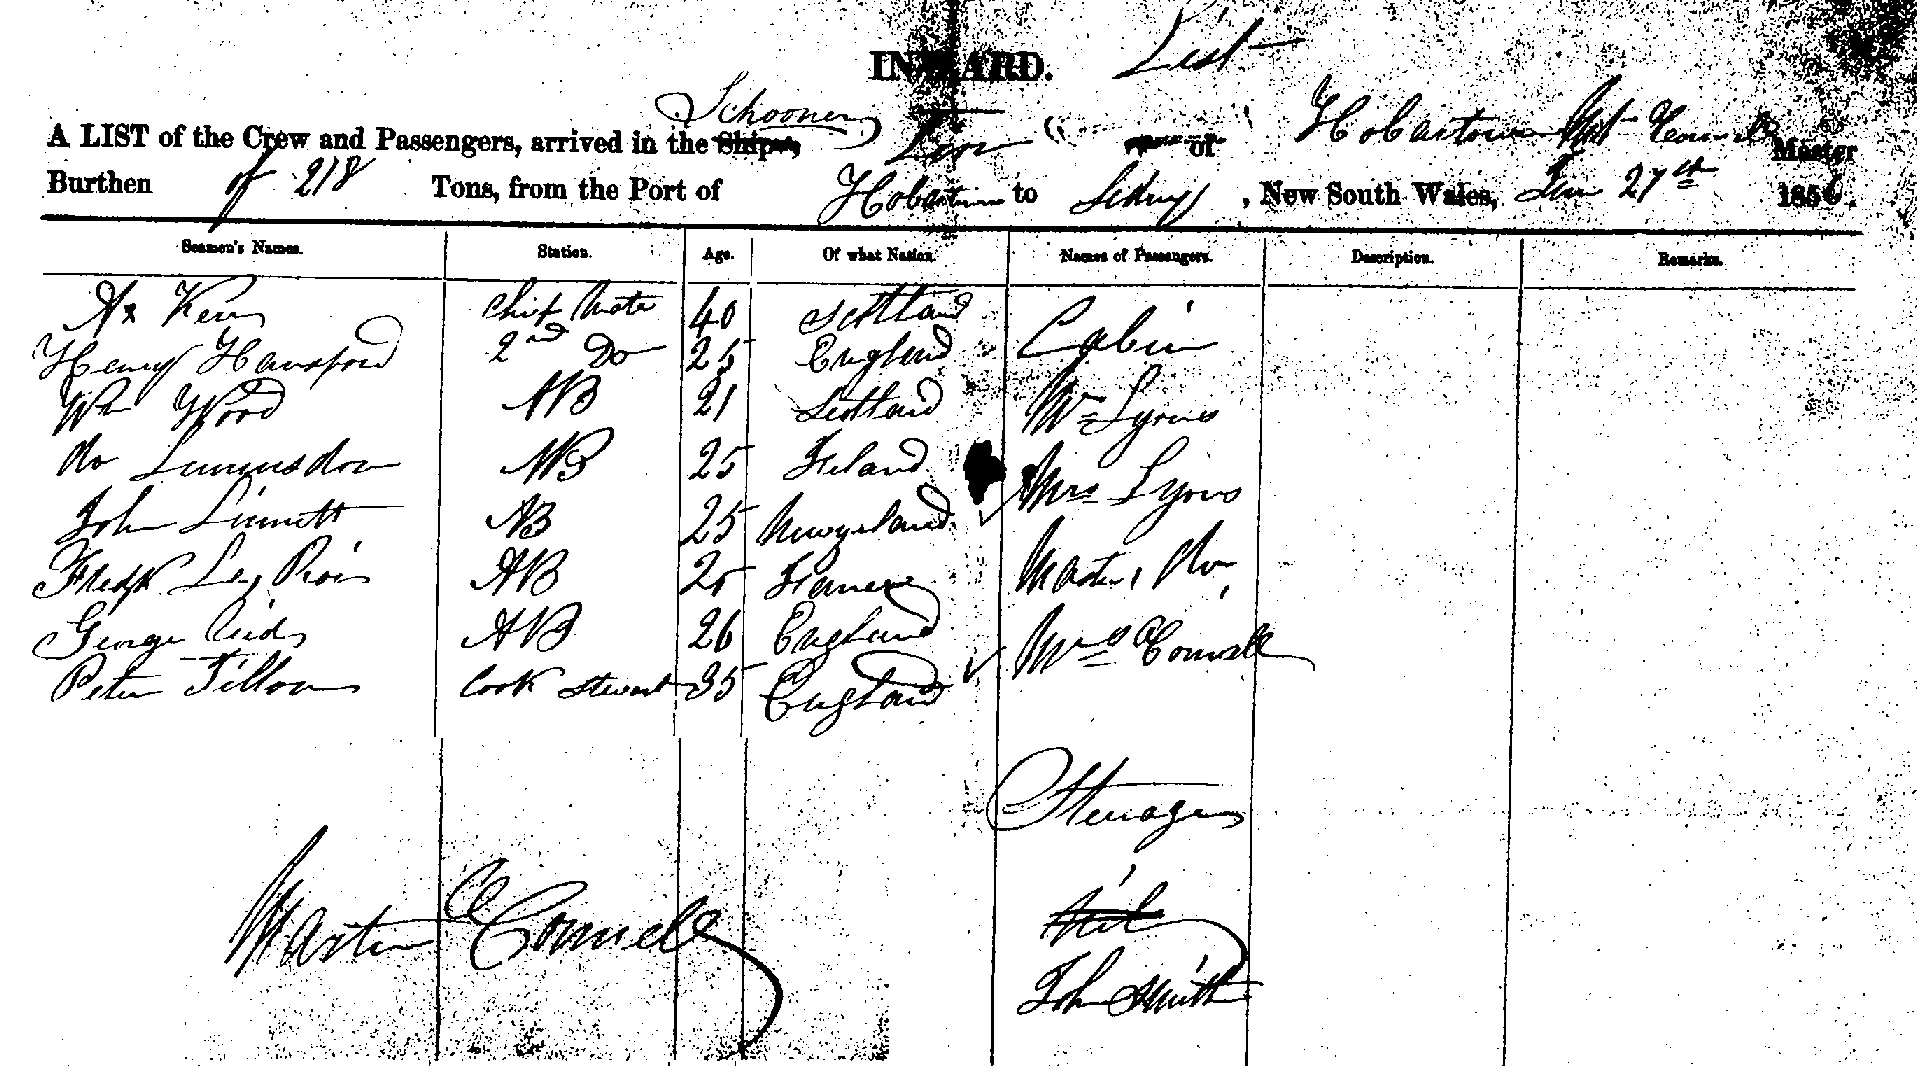 INWARD. List
Schooner
A LIST of the Crew and Passengers, arrived in the Ships, of Hobartown Master
Burthen of 218 Tons, from the Port of Hobartown to Sidney, New South Wales, 27th 1856.
Seamen's Names. Station. Age. Of what Nation. Names of Passengers. Description. Remarks.
Ax Kerr Chif Mate 40 Scotland Cabin
Henry Hansford 2nd Do 25 England
Wm Wood AB 21 Scotland Mr Lyons
do Lumnsdon AB 25 Ireland Mrs Lyons
John Linnett AB 25 Newzeland
Fredk Le AB 25 France Master, Do,
George AB 26 England Mrs O'Connell
Peter Cook Steward 35 England
Steerage
Martin O'Connell
John Smith